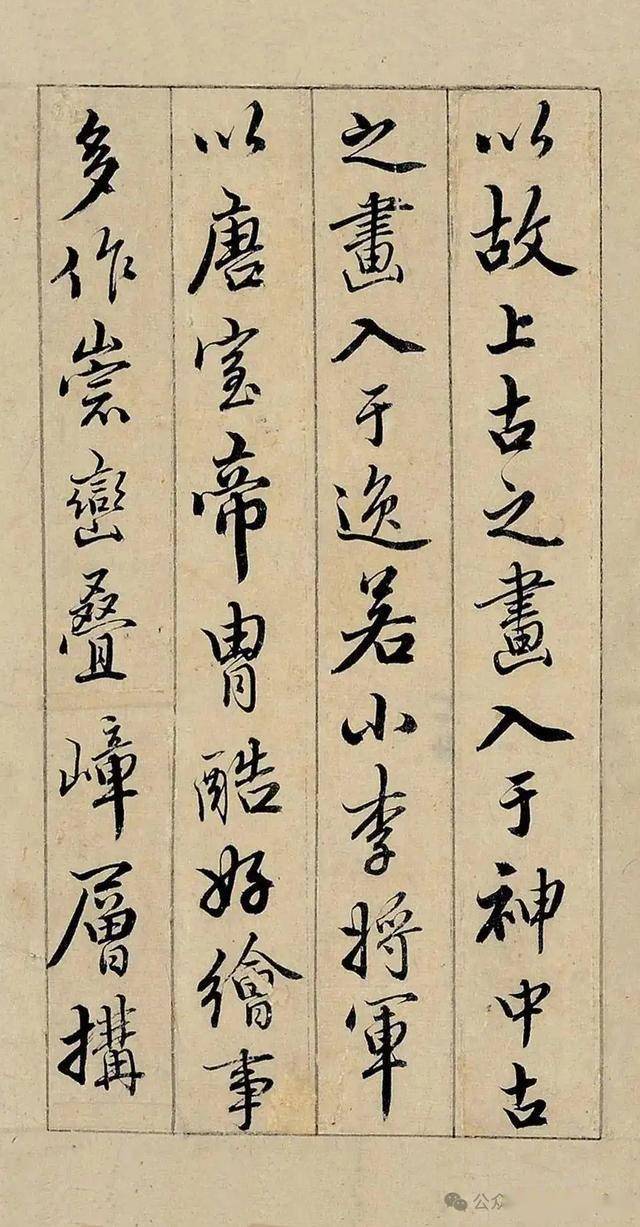 以故上古之畫入于神中古
之畫入于逸若小李將軍
以唐室帝胄酷好繪事
多作崇巒疊嶂層搆
公众